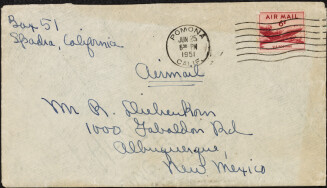 Box 51
Spadra, California
POMONA
JUN 25
PM
1951
CALIF.
AIR MAIL
6¢
Airmail
Mr R. Diebenkorn
1000 Gabaldon Rd
Albuquerque,
New Mexico